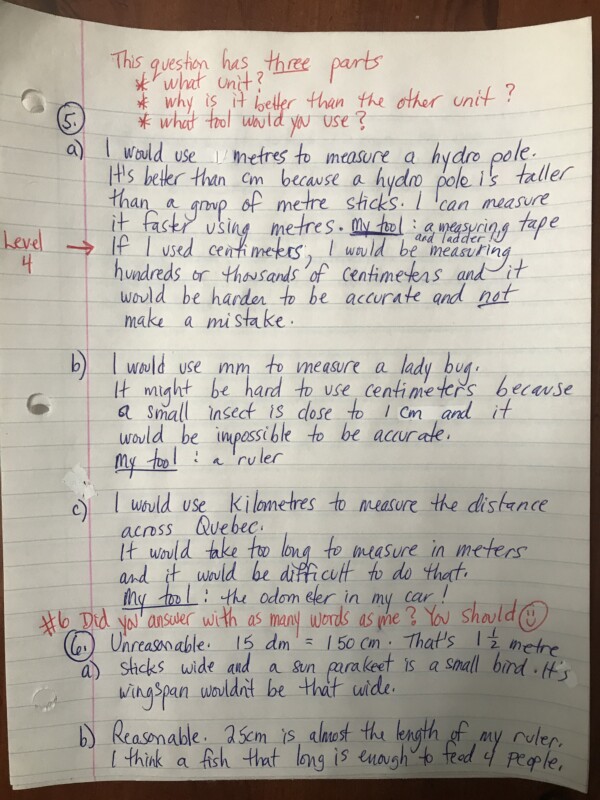 This question has three parts
* what unit?
* why is it better than the other unit?
* what tool would you use?
5.
a) I would use metres to measure a hydro pole.
It's better than cm because a hydro pole is taller
than a group of metre sticks. I can measure
it faster using metres. My tool : a measuring tape
and ladder
Level 4 →
If I used centimeters, I would be measuring
hundreds or thousands of centimeters and it
would be harder to be accurate and not
make a mistake.
b) I would use mm to measure a lady bug.
It might be hard to use centimeters because
a small insect is close to 1 cm and it
would be impossible to be accurate.
My tool : a ruler
c) I would use Kilometres to measure the distance
across Quebec.
It would take too long to measure in meters
and it would be difficult to do that.
My tool : the odometer in my car!
#6 Did you answer with as many words as me? You should ☺
6. Unreasonable. 15 dm = 150 cm. That's 1 ½ metre
a) sticks wide and a sun parakeet is a small bird. It's
wingspan wouldn't be that wide.
b) Reasonable. 25cm is almost the length of my ruler.
I think a fish that long is enough to feed 4 people.